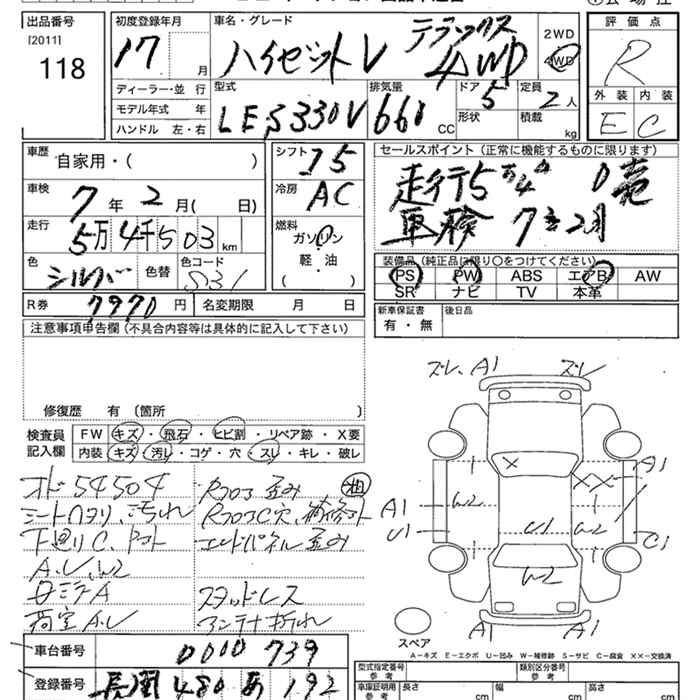 出品番号
[2011]
118
初度登録年月
17 月
車名・グレード
ハイゼットV デラックス
4WD
2WD
4WD
評価点
R
外装 内装
E C
ディーラー・並行
モデル年式 年
ハンドル 左・右
型式
LE S330V
排気量
660 CC
ドア
5
形状
定員
2 人
積載
kg
車歴
自家用・( )
車検
7年 2月( 日)
走行
5万4千503km
色
シルバー
色替
色コード
S31
シフト
I5
冷房
AC
燃料
ガソリン
軽・油
セールスポイント (正常に機能するものに限ります)
走行5万4千 0売
車検 7年2月
装備品 (純正品に限り〇をつけてください)
PS PW ABS エアB AW
SR ナビ TV 本革
R券 7970円 名変期限 月 日
新車保証書
有・無
後日品
注意事項申告欄 (不具合内容等は具体的に記入して下さい)
修復歴 有 (箇所 )
検査員
記入欄
FW キズ・飛石・ヒビ割・リペア跡・X要
内装 キズ・汚れ・コゲ・穴・スレ・キレ・破レ
オド54504
シートヘタリ、汚れ
下廻りC、
A.U.W2
ミラーA
荷室A.U
Rフロア歪み
RフロアC穴、補修跡
エンドパネル歪み
スタッドレス
アンテナ折れ
ズレ、A1 ズレ
X
XX
A1
W2
A1
U1
U1
W2
C1
W2
A1 A1
スペア
A-キズ E-エクボ U-凹み W-補修跡 S-サビ C-腐食 XX-交換済
車台番号 0010739
登録番号 長岡 480 あ 192
型式指定番号
参考
類別区分番号
参考
車庫証明用
参考
長さ cm
幅 cm
高さ cm